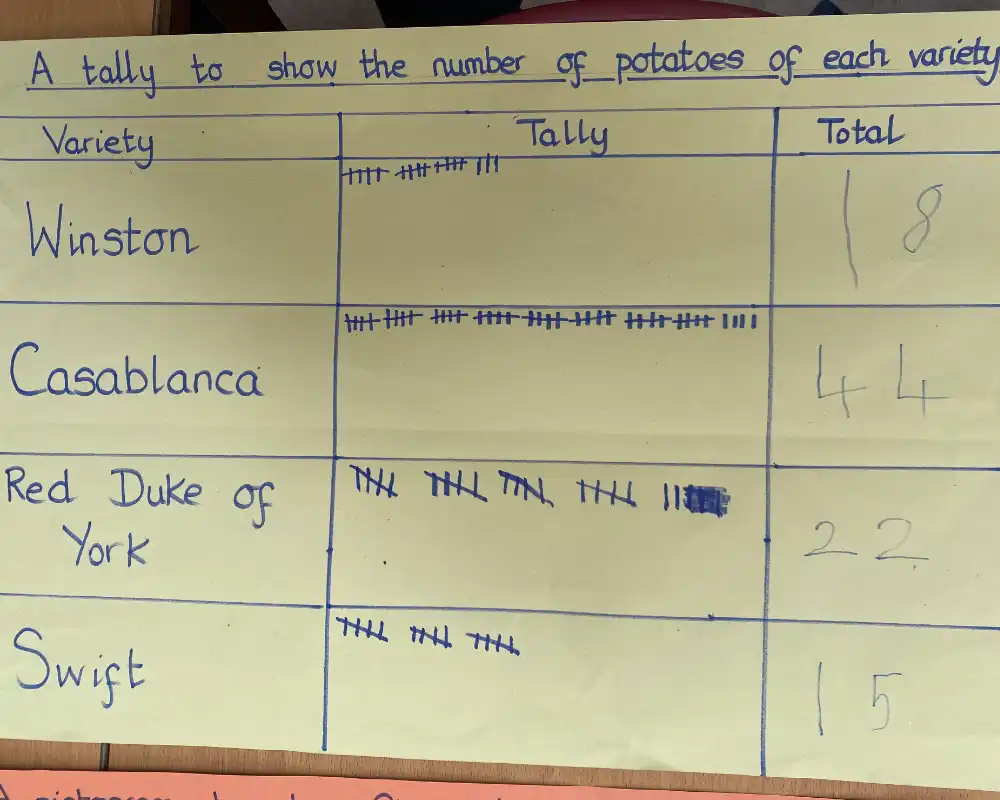 A tally to show the number of potatoes of each variety
Variety Tally Total
Winston 18
Casablanca 44
Red Duke of
York 22
Swift 15